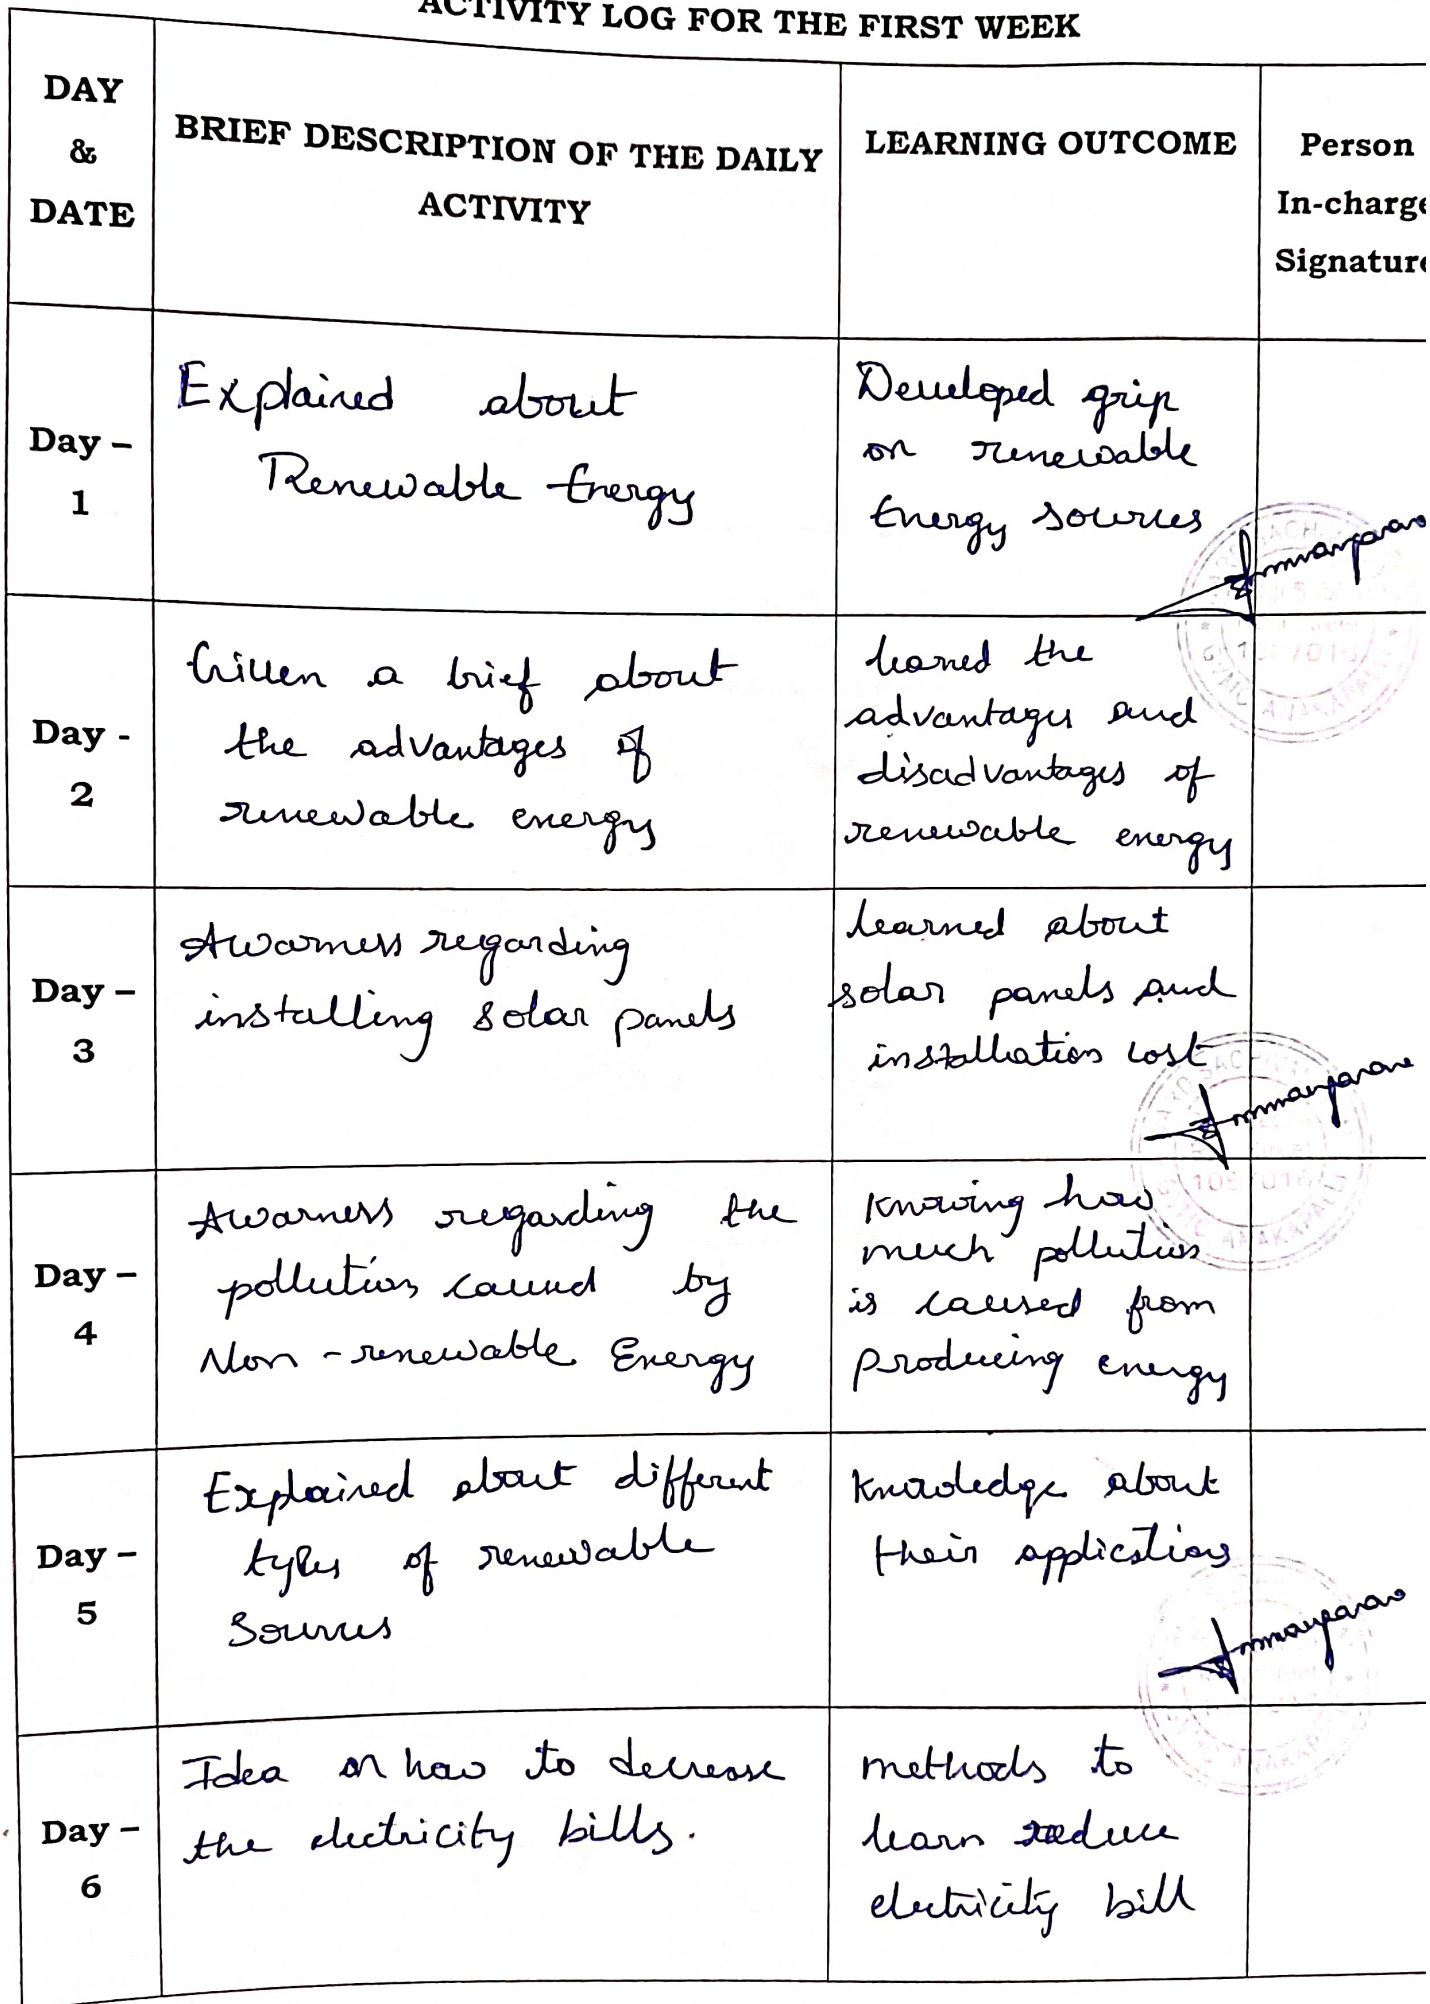 ACTIVITY LOG FOR THE FIRST WEEK
DAY
&
DATE
BRIEF DESCRIPTION OF THE DAILY
ACTIVITY
LEARNING OUTCOME
Person
In-charge
Signature
Day –
1
Explained about
Renewable Energy
Developed grip
on renewable
Energy sources
Day -
2
Given a brief about
the advantages of
renewable energy
learned the
advantages and
disadvantages of
renewable energy
Day –
3
Awarness regarding
installing solar panels
learned about
solar panels and
installation cost
Day –
4
Awarness regarding the
pollution caused by
Non-renewable Energy
Knowing how
much pollution
is caused from
producing energy
Day –
5
Explained about different
types of renewable
Sources
Knowledge about
their applications
Day –
6
Idea on how to decrease
the electricity bills.
methods to
learn reduce
electricity bill